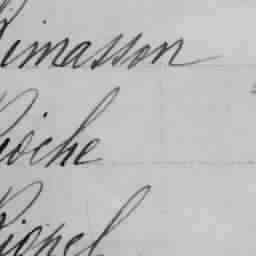 Rimasson
Rioche
Riopel